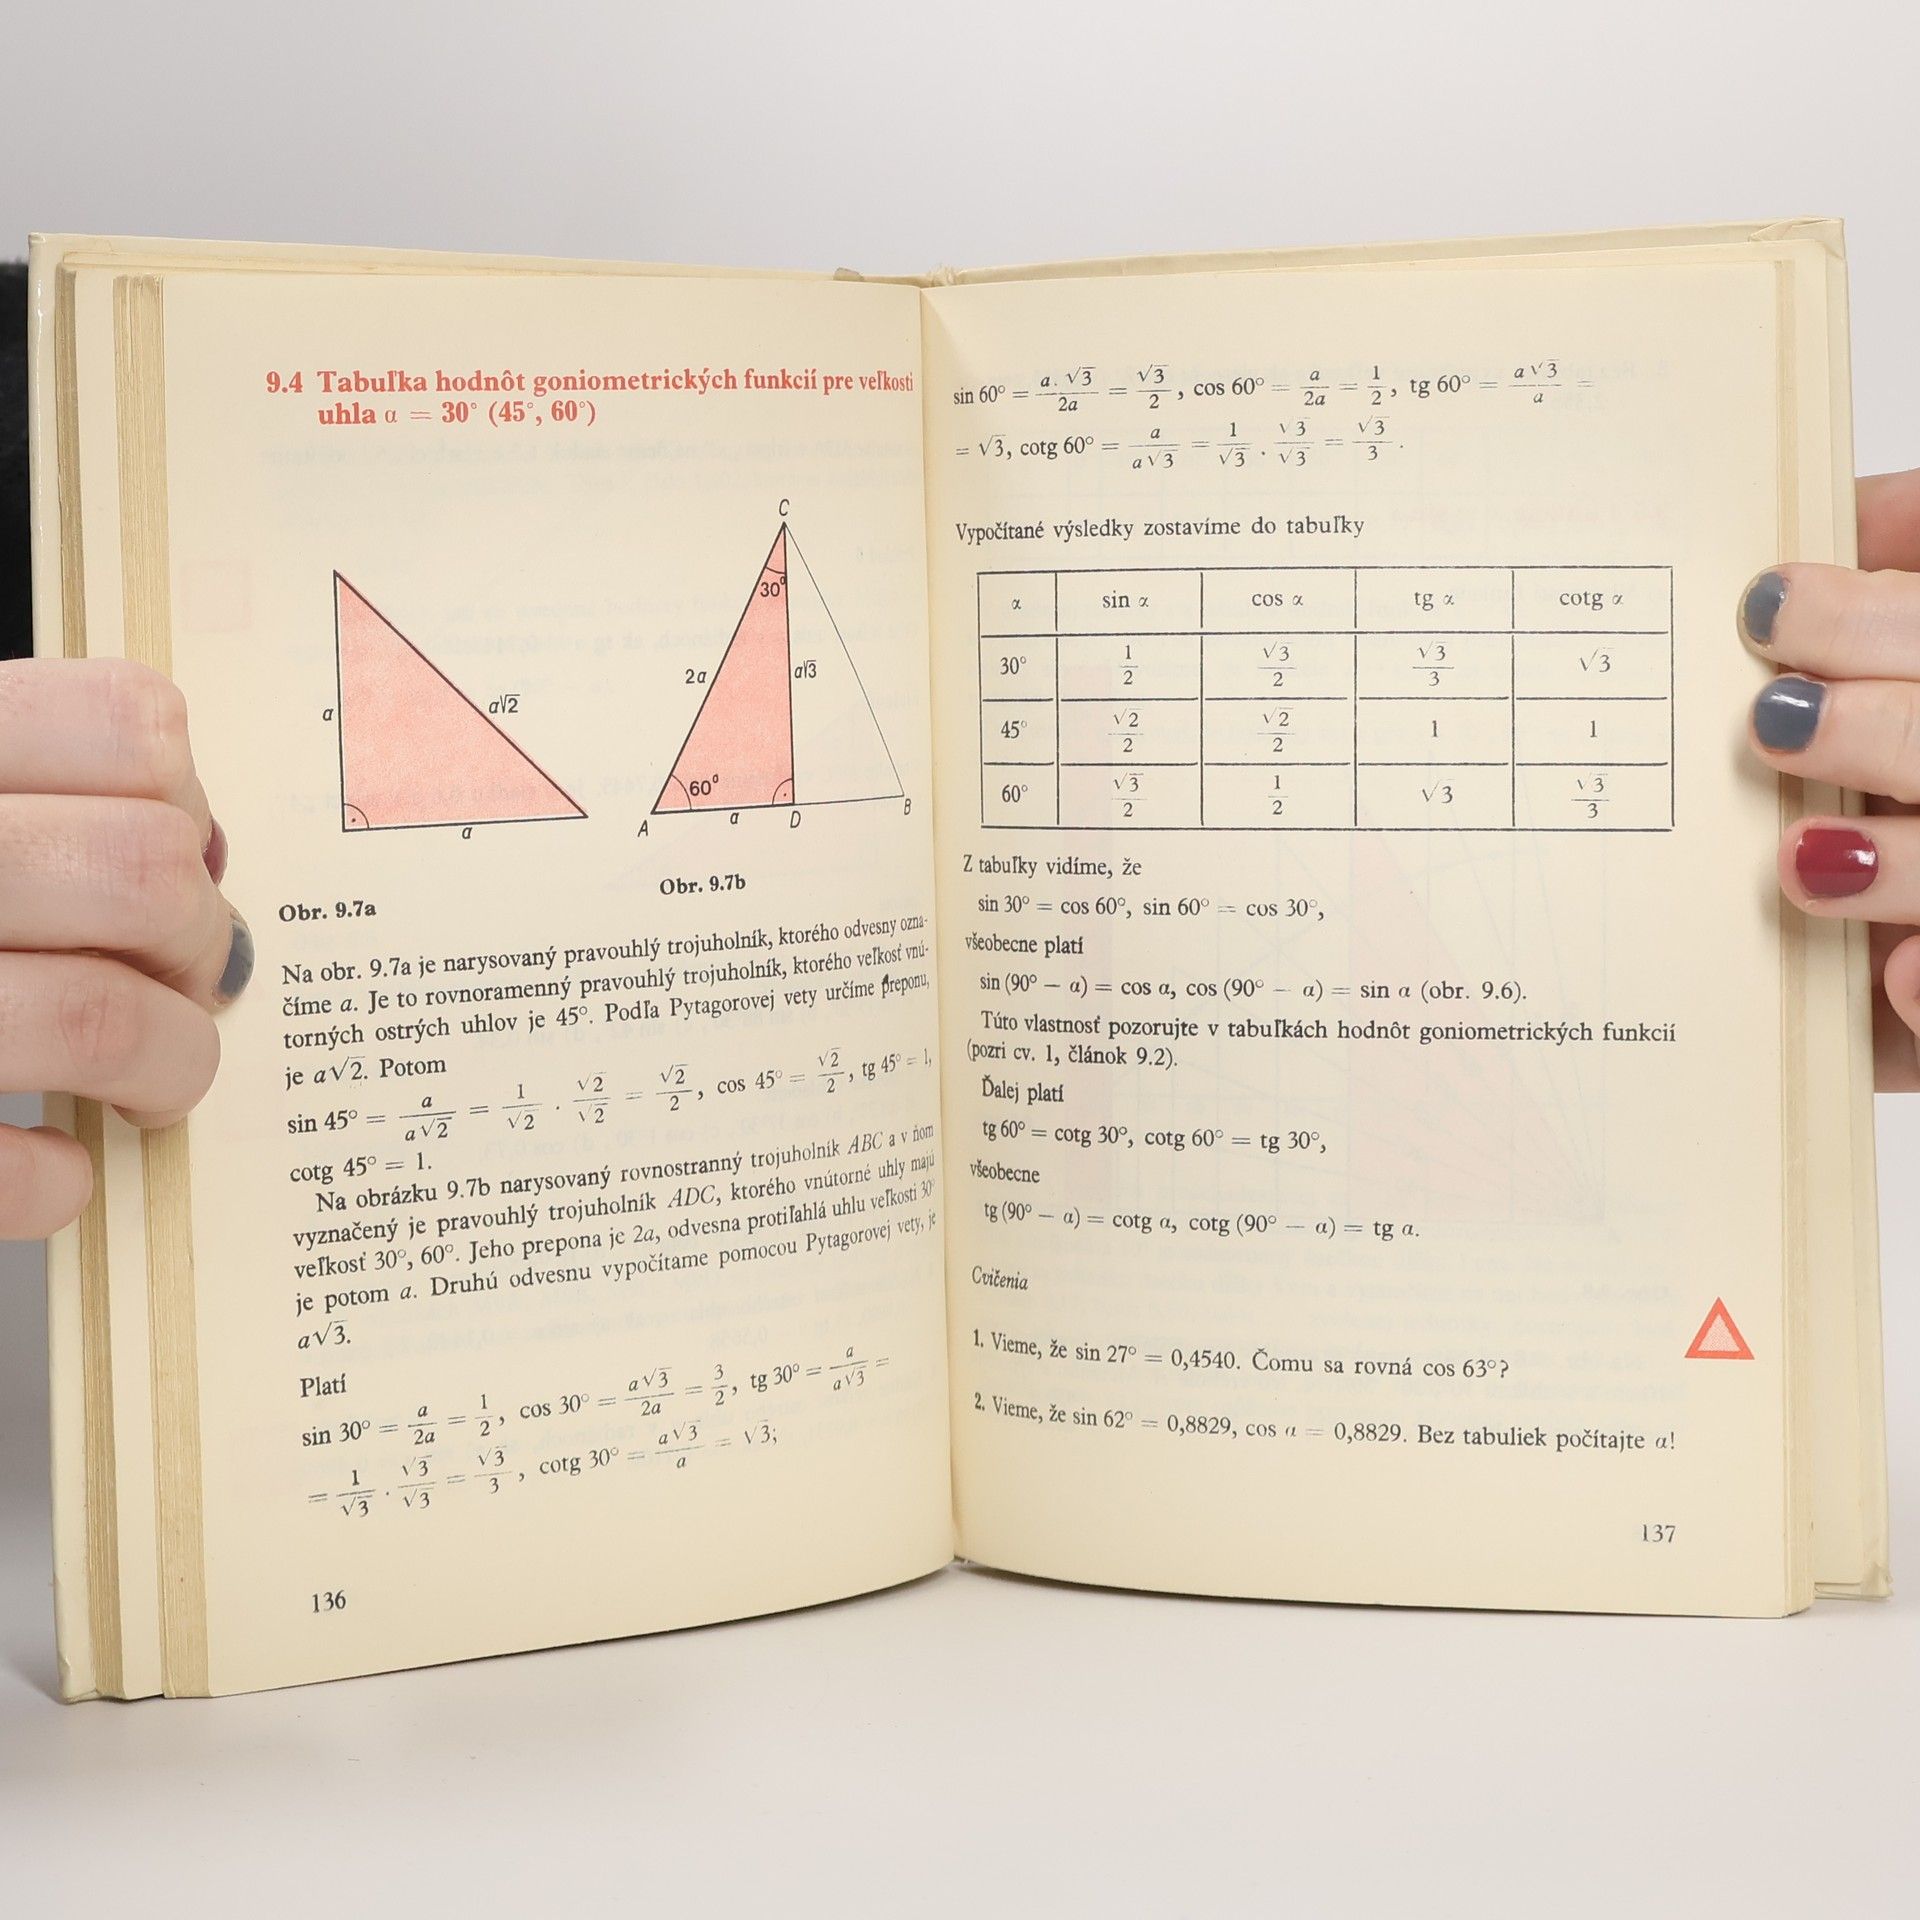 9.4 Tabuľka hodnôt goniometrických funkcií pre veľkosti
uhla α = 30° (45°, 60°)
a
a√2
a
C
30°
2a
a√3
60°
A
a
D
B
Obr. 9.7a
Obr. 9.7b
Na obr. 9.7a je narysovaný pravouhlý trojuholník, ktorého odvesny ozna-
číme a. Je to rovnoramenný pravouhlý trojuholník, ktorého veľkosť vnú-
torných ostrých uhlov je 45°. Podľa Pytagorovej vety určíme preponu,
je a√2. Potom
sin 45° = a/(a√2) = 1/√2 · √2/√2 = √2/2, cos 45° = √2/2, tg 45° = 1,
cotg 45° = 1.
Na obrázku 9.7b narysovaný rovnostranný trojuholník ABC a v ňom
vyznačený je pravouhlý trojuholník ADC, ktorého vnútorné uhly majú
veľkosť 30°, 60°. Jeho prepona je 2a, odvesna protiľahlá uhlu veľkosti 30°
je potom a. Druhú odvesnu vypočítame pomocou Pytagorovej vety, je
a√3.
Platí
sin 30° = a/2a = 1/2, cos 30° = a√3/2a = 3/2, tg 30° = a/(a√3) =
= 1/√3 · √3/√3 = √3/3, cotg 30° = a√3/a = √3;
136
sin 60° = a.√3/2a = √3/2, cos 60° = a/2a = 1/2, tg 60° = a√3/a =
= √3, cotg 60° = a/(a√3) = 1/√3 . √3/√3 = √3/3.
Vypočítané výsledky zostavíme do tabuľky
α sin α cos α tg α cotg α
30° 1/2 √3/2 √3/3 √3
45° √2/2 √2/2 1 1
60° √3/2 1/2 √3 √3/3
Z tabuľky vidíme, že
sin 30° = cos 60°, sin 60° = cos 30°,
všeobecne platí
sin (90° − α) = cos α, cos (90° − α) = sin α (obr. 9.6).
Túto vlastnosť pozorujte v tabuľkách hodnôt goniometrických funkcií
(pozri cv. 1, článok 9.2).
Ďalej platí
tg 60° = cotg 30°, cotg 60° = tg 30°,
všeobecne
tg (90° − α) = cotg α, cotg (90° − α) = tg α.
Cvičenia
1. Vieme, že sin 27° = 0,4540. Čomu sa rovná cos 63°?
2. Vieme, že sin 62° = 0,8829, cos α = 0,8829. Bez tabuliek počítajte α!
137